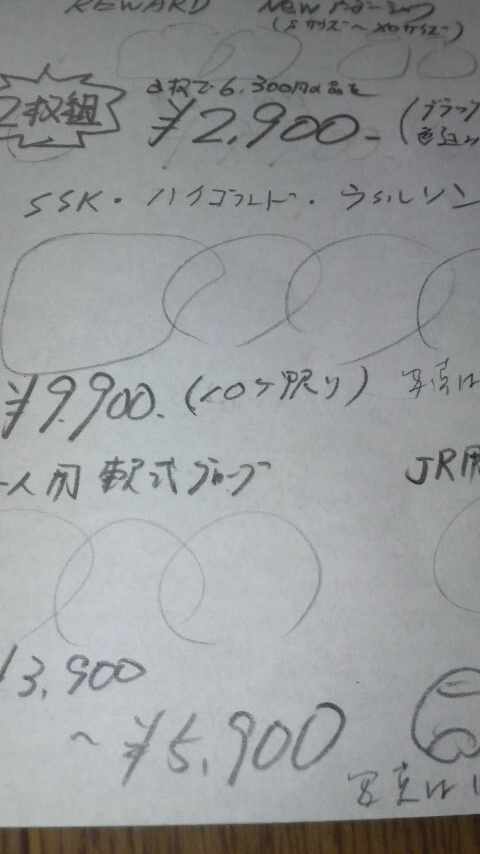 REWARD New
(Sサイズ〜XOサイズ)
2枚組 2枚で6,300円の品を
¥2,900- (ブラック
色込み
SSK・ハイゴールド・ウィルソン
¥9,900. (10ケ限り) 写真は
一人用 軟式グローブ JR用
¥3,900
〜¥5,900
写真は